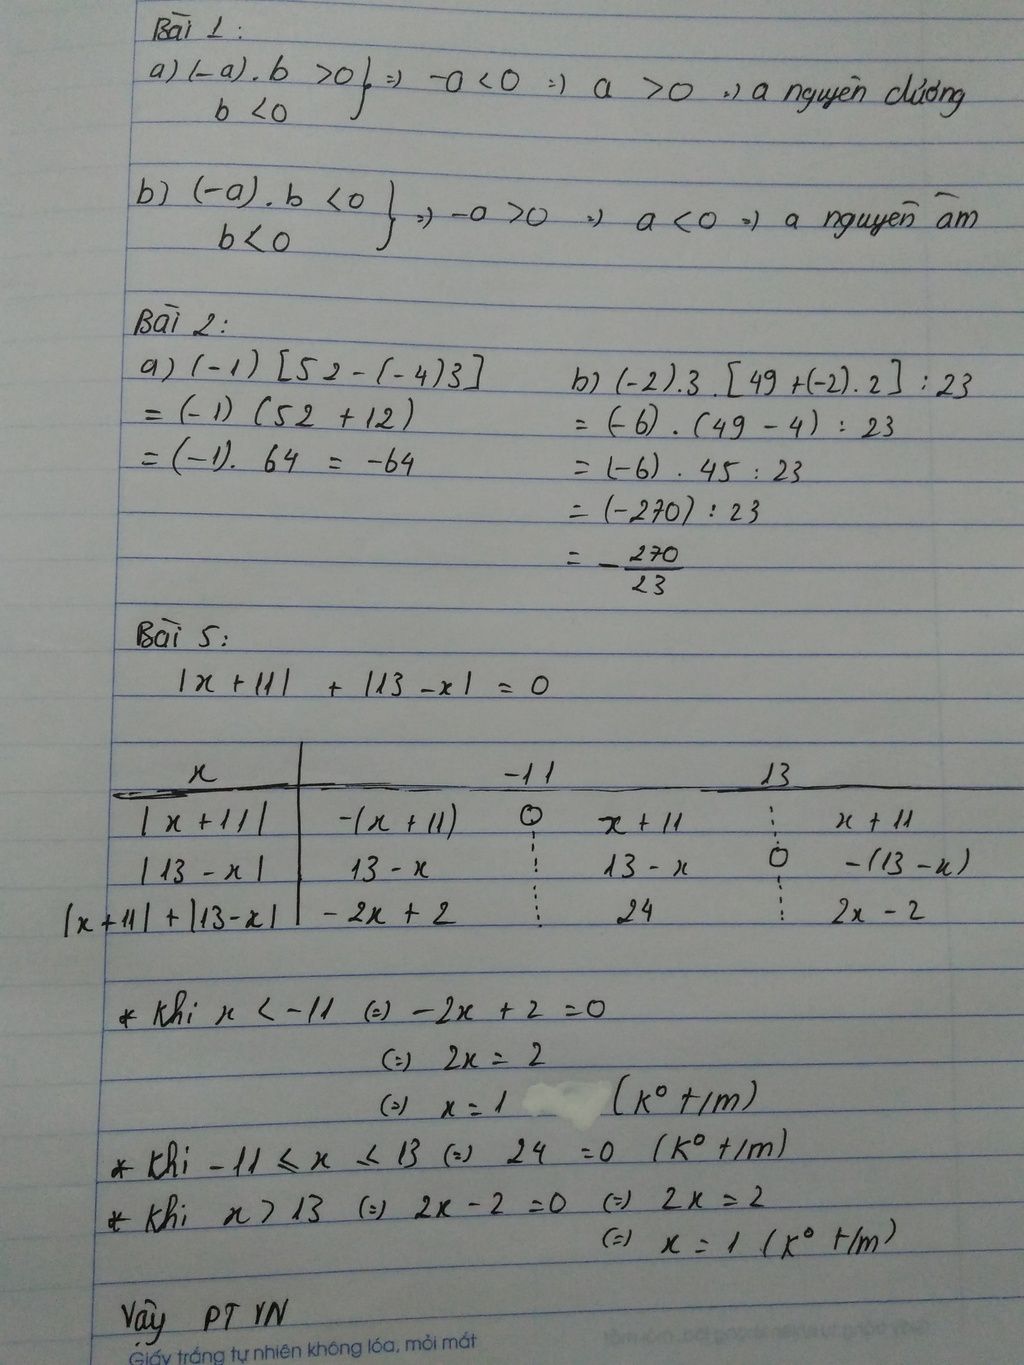 Bài 1:
a) (-a). b > 0 } => -a < 0 => a > 0 => a nguyên dương
b < 0
b) (-a). b < 0 } => -a > 0 => a < 0 => a nguyên âm
b < 0
Bài 2:
a) (-1) [52 - (-4)3]
= (-1) (52 + 12)
= (-1). 64 = -64
b) (-2).3. [49 + (-2).2] : 23
= (-6) . (49 - 4) : 23
= (-6) . 45 : 23
= (-270) : 23
= - 270/23
Bài 5:
|x + 11| + |13 - x| = 0
x -11 13
|x + 11| -(x + 11) 0 x + 11 x + 11
|13 - x| 13 - x 13 - x 0 -(13 - x)
|x + 11| + |13 - x| -2x + 2 24 2x - 2
* Khi x < -11 (=) -2x + 2 = 0
(=) 2x = 2
(=) x = 1 (K° t/m)
* Khi -11 ≤ x ≤ 13 (=) 24 = 0 (K° t/m)
* Khi x > 13 (=) 2x - 2 = 0 (=) 2x = 2
(=) x = 1 (K° t/m)
Vậy PT VN
Giấy trắng tự nhiên không lóa, mỏi mắt